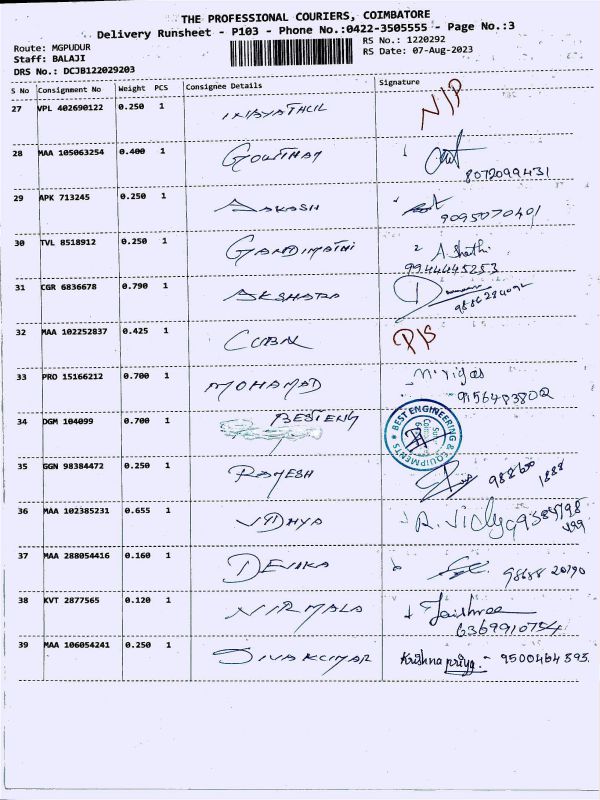 THE PROFESSIONAL COURIERS, COIMBATORE
Delivery Runsheet - P103 - Phone No.:0422-3505555 - Page No.:3
Route: MGPUDUR RS No.: 1220292
Staff: BALAJI RS Date: 07-Aug-2023
DRS No.: DCJB122029203
S No Consignment No Weight PCS Consignee Details Signature
27 VPL 402690122 0.250 1 N/P
28 MAA 105063254 0.400 1 GOWTHAM 8072099431
29 APK 713245 0.250 1 AAKASH 9095070401
30 TVL 8518912 0.250 1 GANDIMATHI A. Shathi 9944445253
31 CGR 6836678 0.790 1 AKSHARA
32 MAA 102252837 0.425 1 CUBAL P/S
33 PRO 15166212 0.700 1 MOHAMAD
34 DGM 104099 0.700 1 BESTENG BEST ENGINEERING & EQUIPMENTS
35 GGN 98384472 0.250 1 RAMESH
36 MAA 102385231 0.655 1 VIDHYA R. Vidya
37 MAA 288054416 0.160 1 DEVIKA
38 KVT 2877565 0.120 1 NIRMALA Jaishree 6369910754
39 MAA 106054241 0.250 1 SIVAKUMAR Krishna priya. - 9500464593.